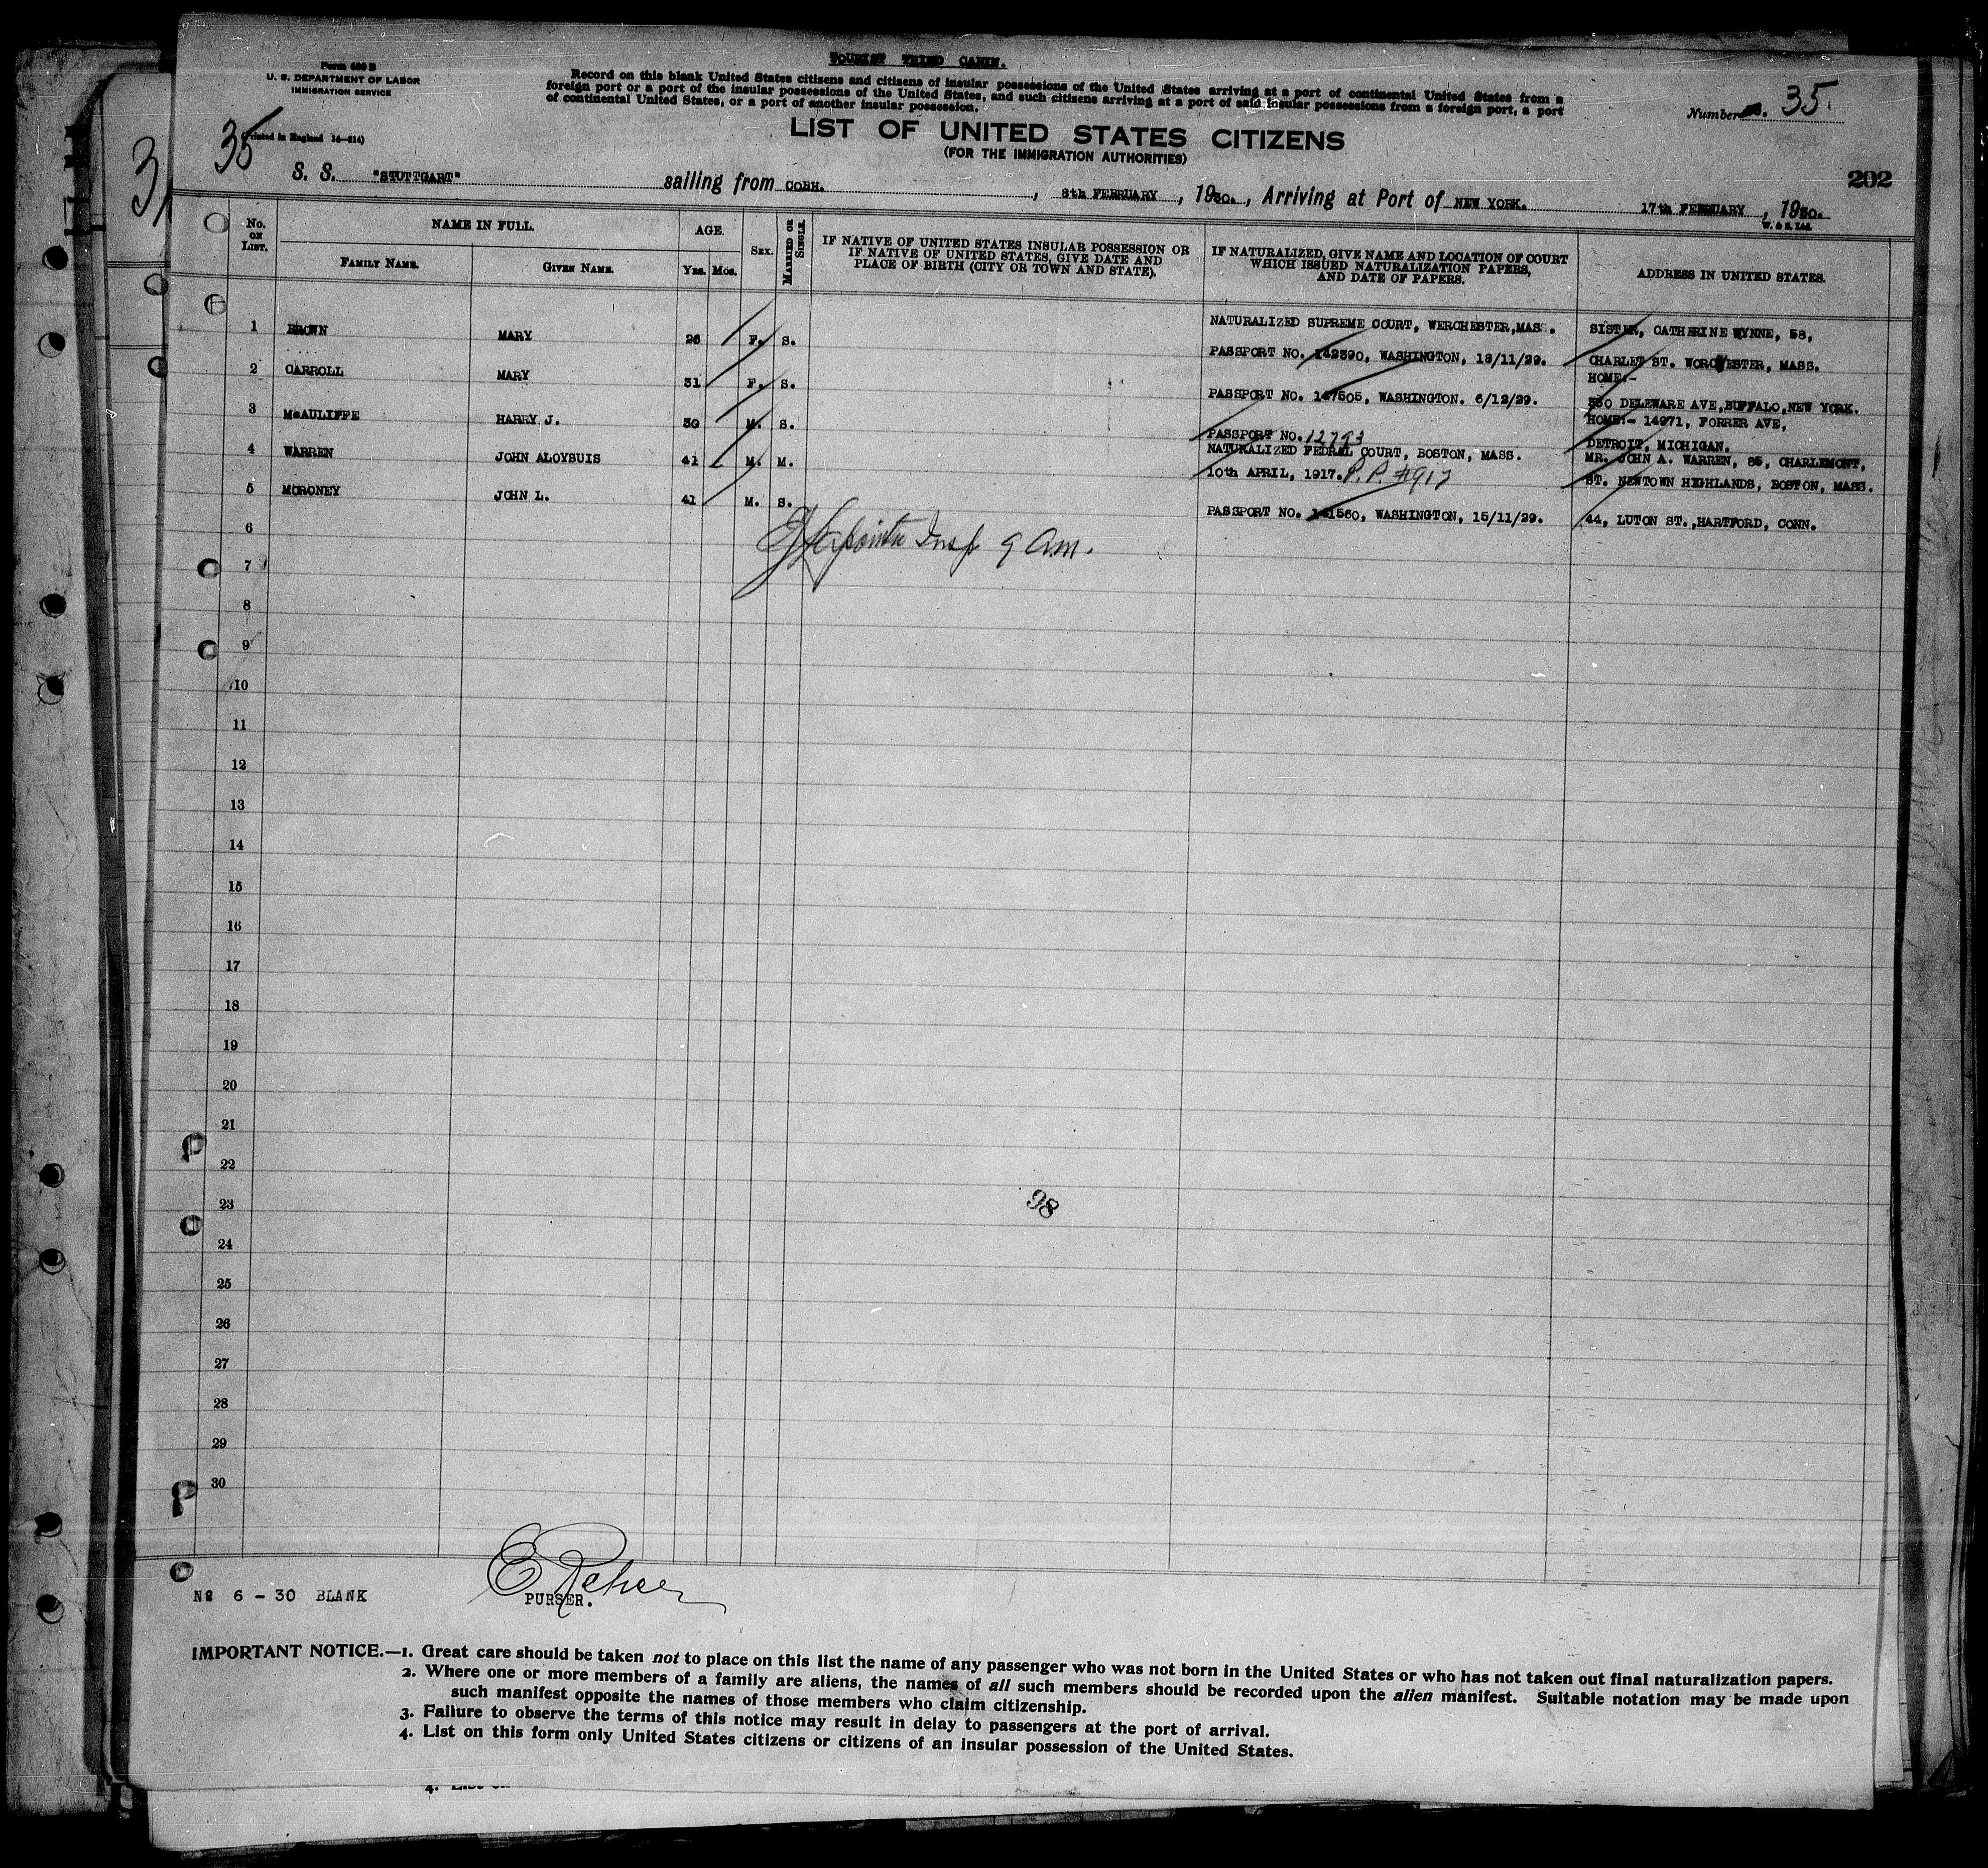 TOURIST THIRD CABIN.
Form 630 B
U. S. DEPARTMENT OF LABOR
IMMIGRATION SERVICE
Record on this blank United States citizens and citizens of insular possessions of the United States arriving at a port of continental United States from a
foreign port or a port of the insular possessions of the United States, and such citizens arriving at a port of said insular possessions from a foreign port, a port
of continental United States, or a port of another insular possession.
Number 35.
35
(Printed in England 14—214)
LIST OF UNITED STATES CITIZENS
(FOR THE IMMIGRATION AUTHORITIES)
202
S. S. "STUTTGART" sailing from COBH. , 8th FEBRUARY , 1930. , Arriving at Port of NEW YORK. 17th FEBRUARY , 1930.
W. & S. Ltd.
No. ON LIST. NAME IN FULL. AGE. SEX. MARRIED OR SINGLE.
FAMILY NAME. GIVEN NAME. Yrs. Mos.
IF NATIVE OF UNITED STATES INSULAR POSSESSION OR
IF NATIVE OF UNITED STATES, GIVE DATE AND
PLACE OF BIRTH (CITY OR TOWN AND STATE).
IF NATURALIZED, GIVE NAME AND LOCATION OF COURT
WHICH ISSUED NATURALIZATION PAPERS,
AND DATE OF PAPERS.
ADDRESS IN UNITED STATES.
1 BROWN MARY 26 F. S. NATURALIZED SUPREME COURT, WERCHESTER,MASS. SISTER, CATHERINE WYNNE, 58,
PASSPORT NO. 142390, WASHINGTON, 18/11/29. CHARLET ST. WORCESTER, MASS.
2 CARROLL MARY 31 F. S. HOME:-
PASSPORT NO. 147505, WASHINGTON. 6/12/29. 350 DELEWARE AVE,BUFFALO,NEW YORK.
3 McAULIFFE HARRY J. 30 M. S. HOME:- 14971, FORRER AVE,
PASSPORT NO. 12793 DETROIT, MICHIGAN.
4 WARREN JOHN ALOYSUIS 41 M. M. NATURALIZED FEDRAL COURT, BOSTON, MASS. MR. JOHN A. WARREN, 85, CHARLEMONT,
10th APRIL, 1917. P.P. #917 ST. NEWTOWN HIGHLANDS, BOSTON, MASS.
5 MORONEY JOHN L. 41 M. S.
PASSPORT NO. 141560, WASHINGTON, 15/11/29. 44, LUTON ST.,HARTFORD, CONN.
6
Lapointe Insp 9 am.
7
8
9
10
11
12
13
14
15
16
17
18
19
20
21
22
23
98
24
25
26
27
28
29
30
Nº 6 - 30 BLANK
PURSER.
IMPORTANT NOTICE.—1. Great care should be taken not to place on this list the name of any passenger who was not born in the United States or who has not taken out final naturalization papers.
2. Where one or more members of a family are aliens, the names of all such members should be recorded upon the alien manifest. Suitable notation may be made upon
such manifest opposite the names of those members who claim citizenship.
3. Failure to observe the terms of this notice may result in delay to passengers at the port of arrival.
4. List on this form only United States citizens or citizens of an insular possession of the United States.